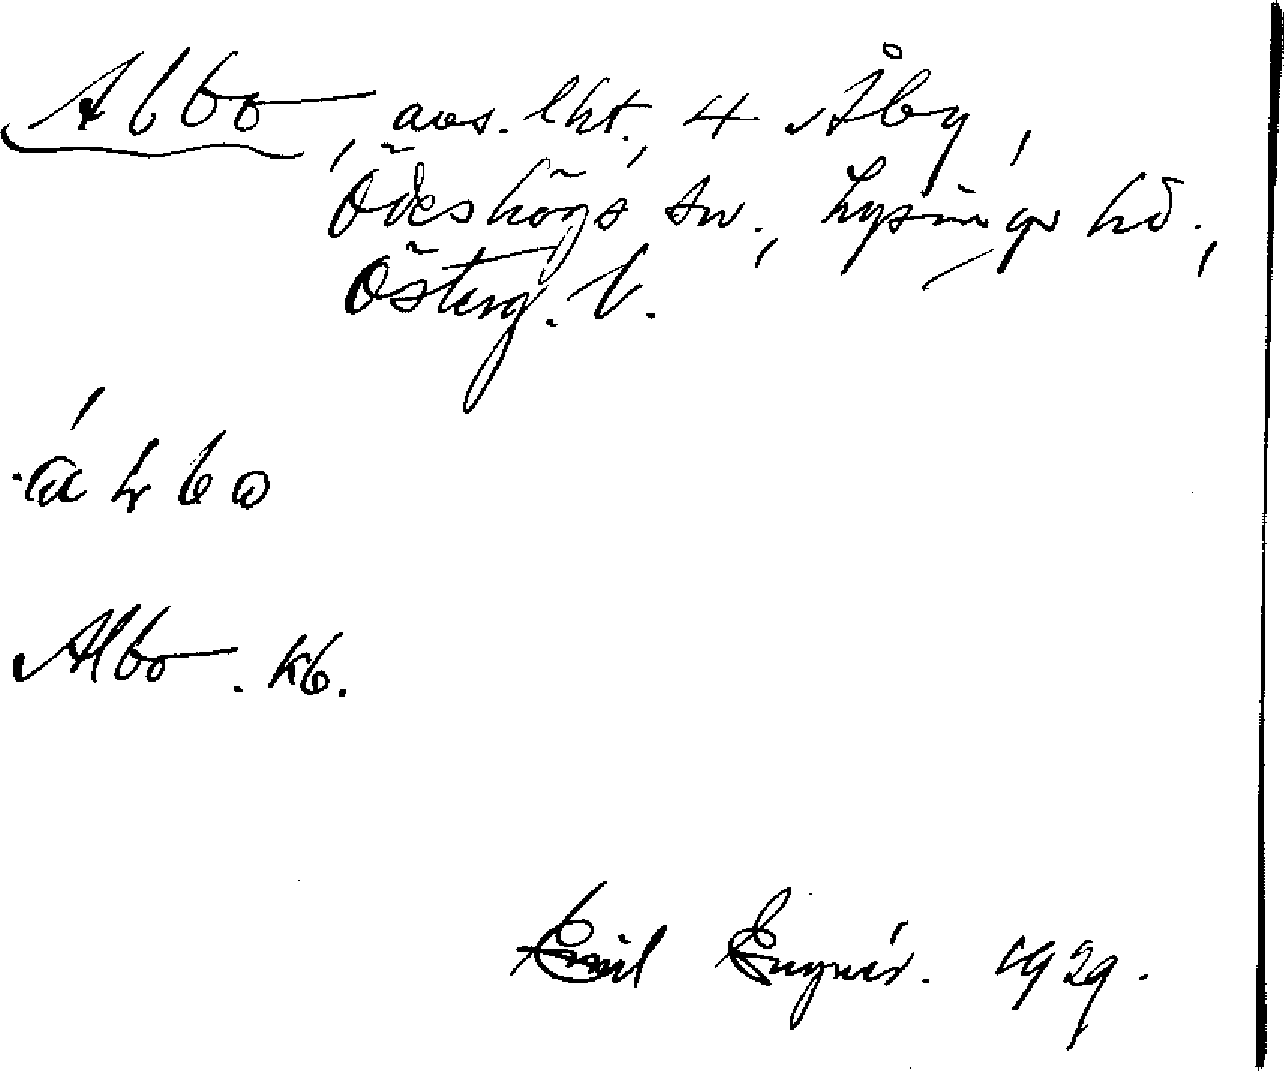 Albo, avs. lht., 4 Åby,
Ödeshögs sn., Lysings hd.,
Österg. l.
Albo. kb.
Emil Engnér. 1929.